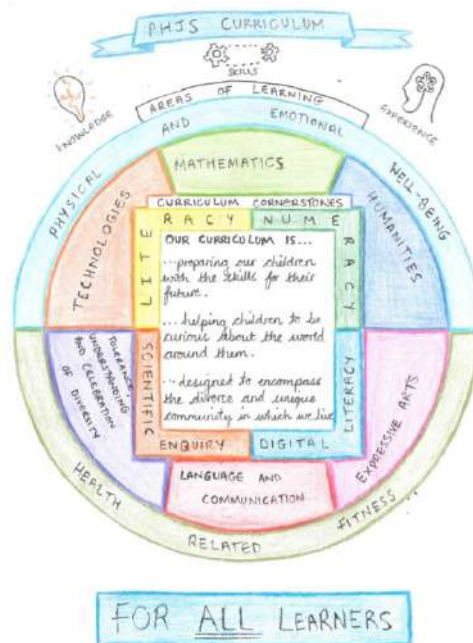 PHJS CURRICULUM
SKILLS
KNOWLEDGE
EXPERIENCE
AREAS OF LEARNING
PHYSICAL AND EMOTIONAL WELL-BEING
MATHEMATICS
TECHNOLOGIES
HUMANITIES
CURRICULUM CORNERSTONES
LITERACY
NUMERACY
OUR CURRICULUM IS...
...preparing our children
with the skills for their
future.
...helping children to be
curious about the world
around them.
...designed to encompass
the diverse and unique
community in which we live
SCIENTIFIC
ENQUIRY
DIGITAL
LITERACY
TOLERANCE,
UNDERSTANDING
AND CELEBRATION
OF DIVERSITY
EXPRESSIVE ARTS
LANGUAGE AND
COMMUNICATION
HEALTH RELATED FITNESS..
FOR ALL LEARNERS